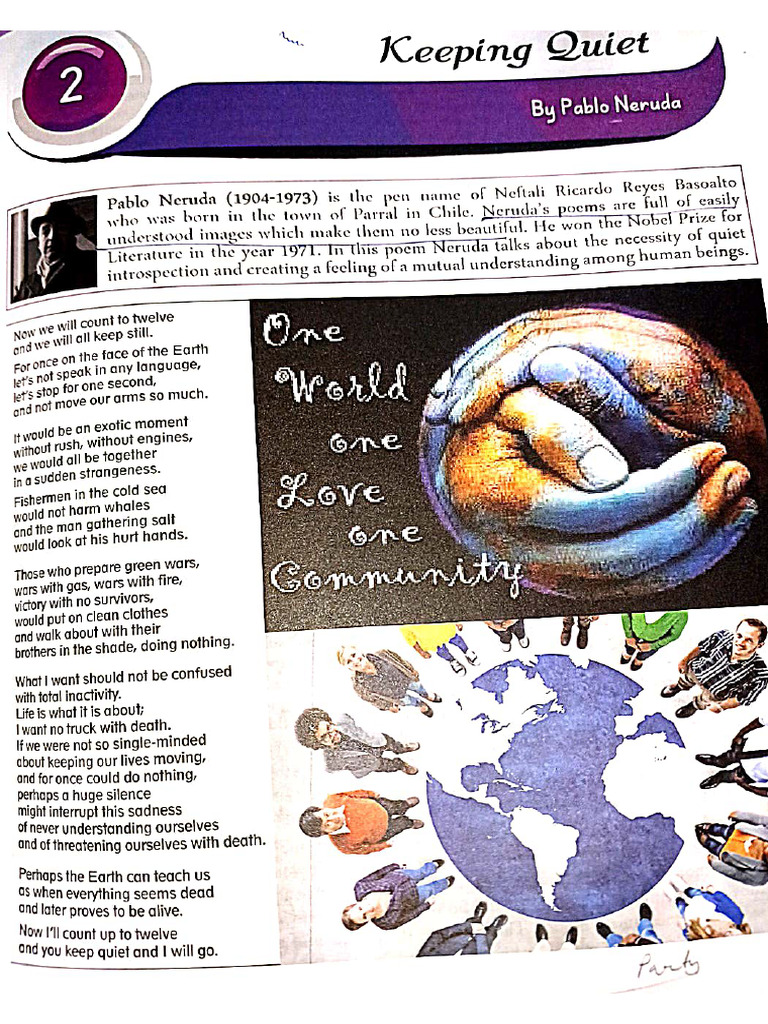 2
Keeping Quiet
By Pablo Neruda
Pablo Neruda (1904-1973) is the pen name of Neftali Ricardo Reyes Basoalto
who was born in the town of Parral in Chile. Neruda's poems are full of easily
understood images which make them no less beautiful. He won the Nobel Prize for
Literature in the year 1971. In this poem Neruda talks about the necessity of quiet
introspection and creating a feeling of a mutual understanding among human beings.
Now we will count to twelve
and we will all keep still.
For once on the face of the Earth
let's not speak in any language,
let's stop for one second,
and not move our arms so much.
It would be an exotic moment
without rush, without engines,
we would all be together
in a sudden strangeness.
Fishermen in the cold sea
would not harm whales
and the man gathering salt
would look at his hurt hands.
Those who prepare green wars,
wars with gas, wars with fire,
victory with no survivors,
would put on clean clothes
and walk about with their
brothers in the shade, doing nothing.
What I want should not be confused
with total inactivity.
Life is what it is about;
I want no truck with death.
If we were not so single-minded
about keeping our lives moving,
and for once could do nothing,
perhaps a huge silence
might interrupt this sadness
of never understanding ourselves
and of threatening ourselves with death.
Perhaps the Earth can teach us
as when everything seems dead
and later proves to be alive.
Now I'll count up to twelve
and you keep quiet and I will go.
One
World
one
Love
one
Community
Party